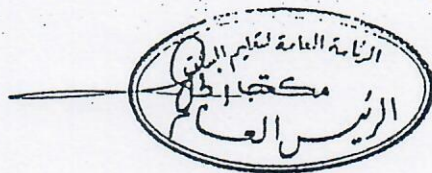 الرئاسة العامة لتعليم البنات
مكتب
الرئيس العام